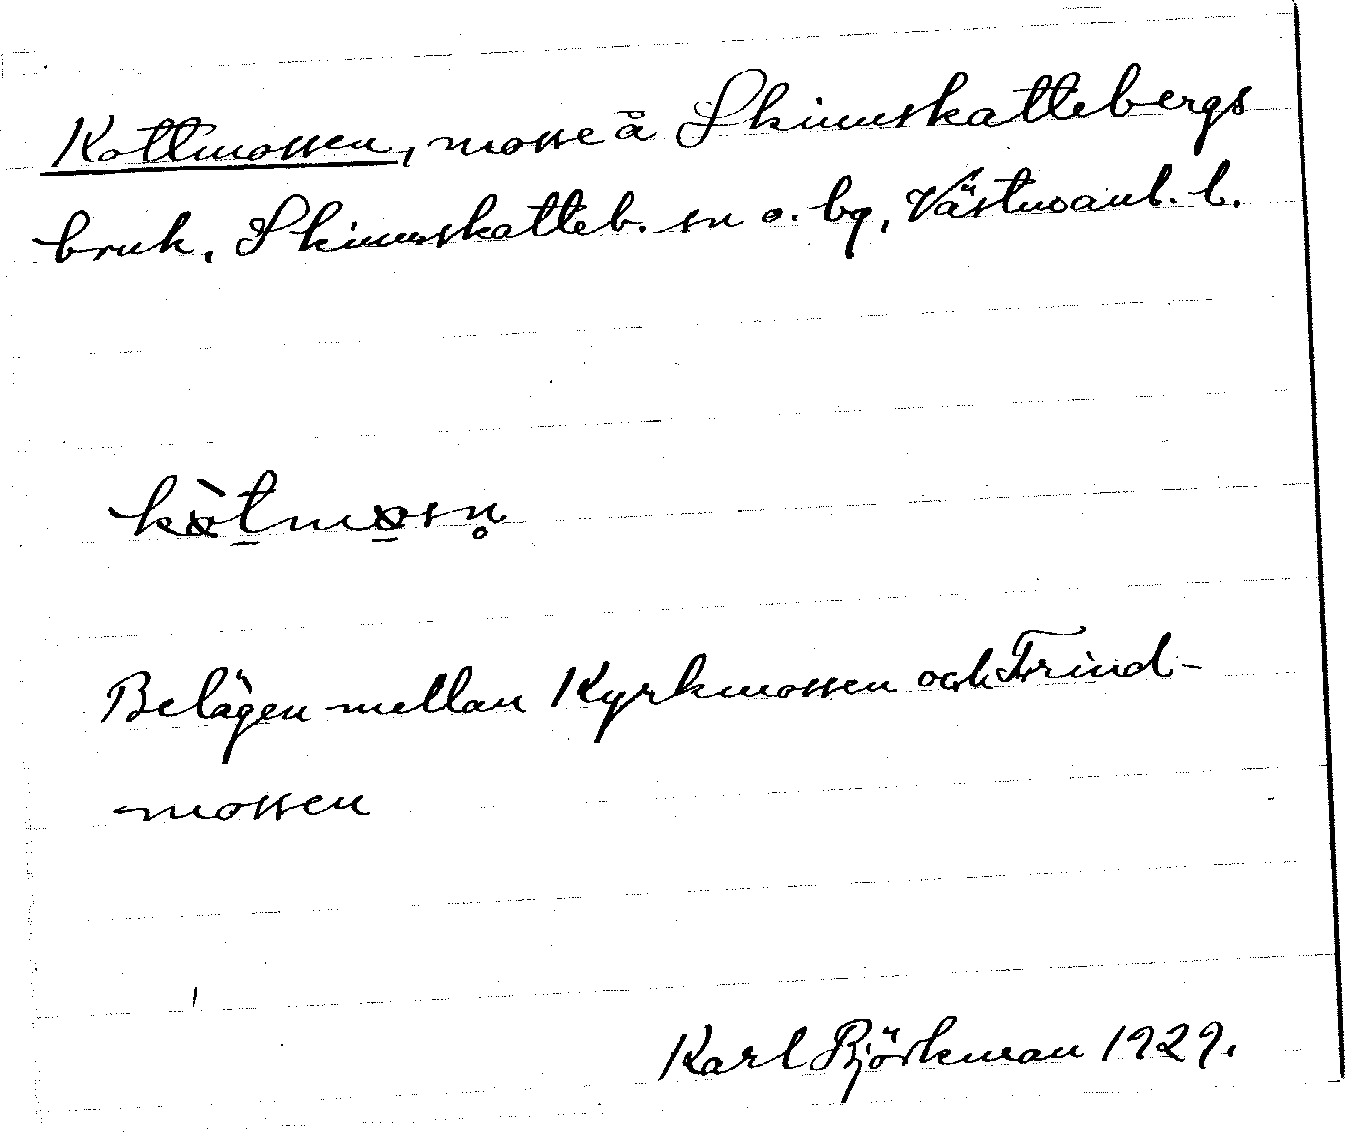 Kottmossen, mosse å Skinnskattebergs
bruk, Skinnskatteb. sn o. bg, Västmanl. l.
kòtmosn̥
Belägen mellan Kyrkmossen och Trind-
mossen
Karl Björkman 1929.